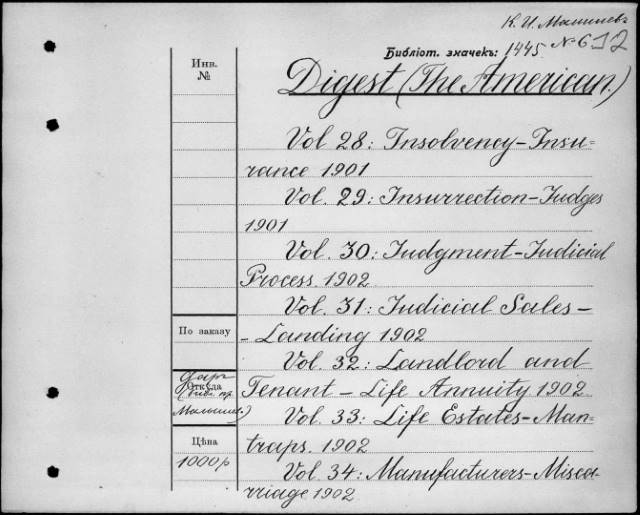 К. И. Малышевъ
Библіот. значекъ: 1445. № 612
Инв.
№
Digest (The American.)
Vol 28: Insolvency-Insu-
rance 1901
Vol. 29: Insurrection-Judges
1901
Vol. 30: Judgment-Judicial
Process. 1902
Vol. 31: Judicial Sales-
- Landing 1902
По заказу
Vol. 32: Landlord and
Tenant - Life Annuity 1902
Откуда
даръ
Vol. 33: Life Estates-Man-
traps. 1902
Цѣна
1000р
Vol. 34: Manufacturers-Misca-
rriage 1902